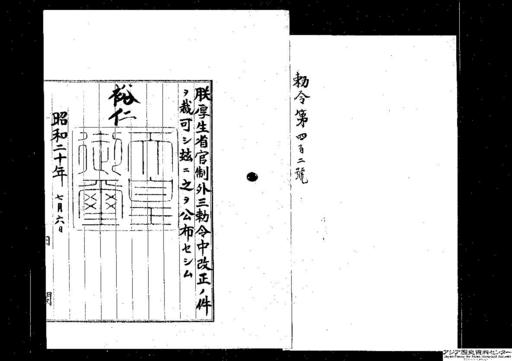 勅令第四百二號
朕厚生省官制外三勅令中改正ノ件
ヲ裁可シ玆ニ之ヲ公布セシム
裕仁
天皇
御璽
昭和二十年七月六日
アジア歴史資料センター